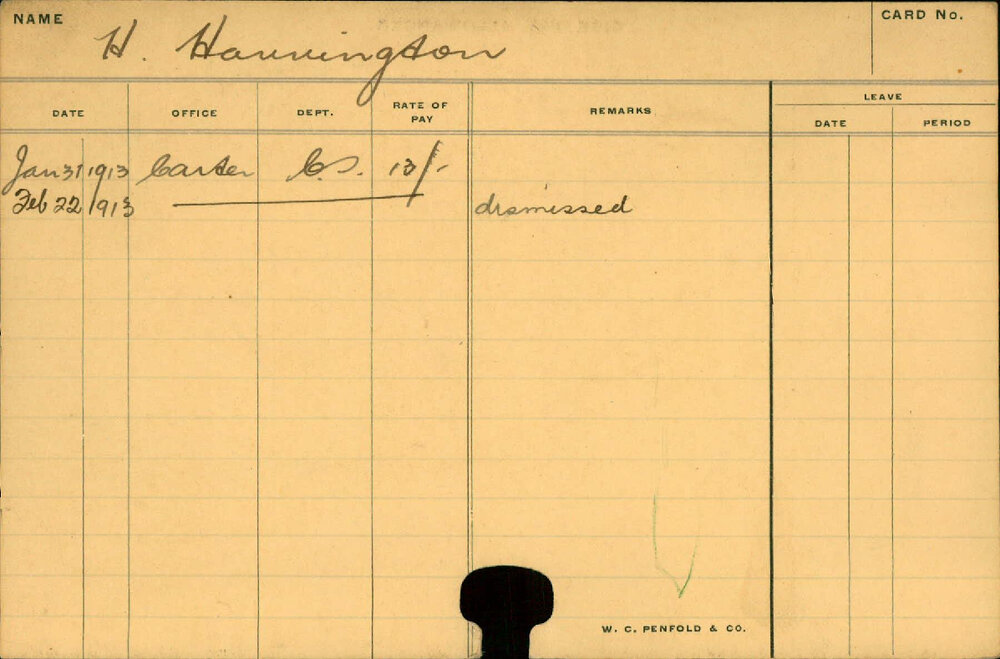 NAME
H. Hannington
CARD No.
DATE
OFFICE
DEPT.
RATE OF PAY
REMARKS
LEAVE
DATE
PERIOD
Jan 31 1913 Carter C.S. 13/-
Feb 22 1913 dismissed
W. C. PENFOLD & CO.